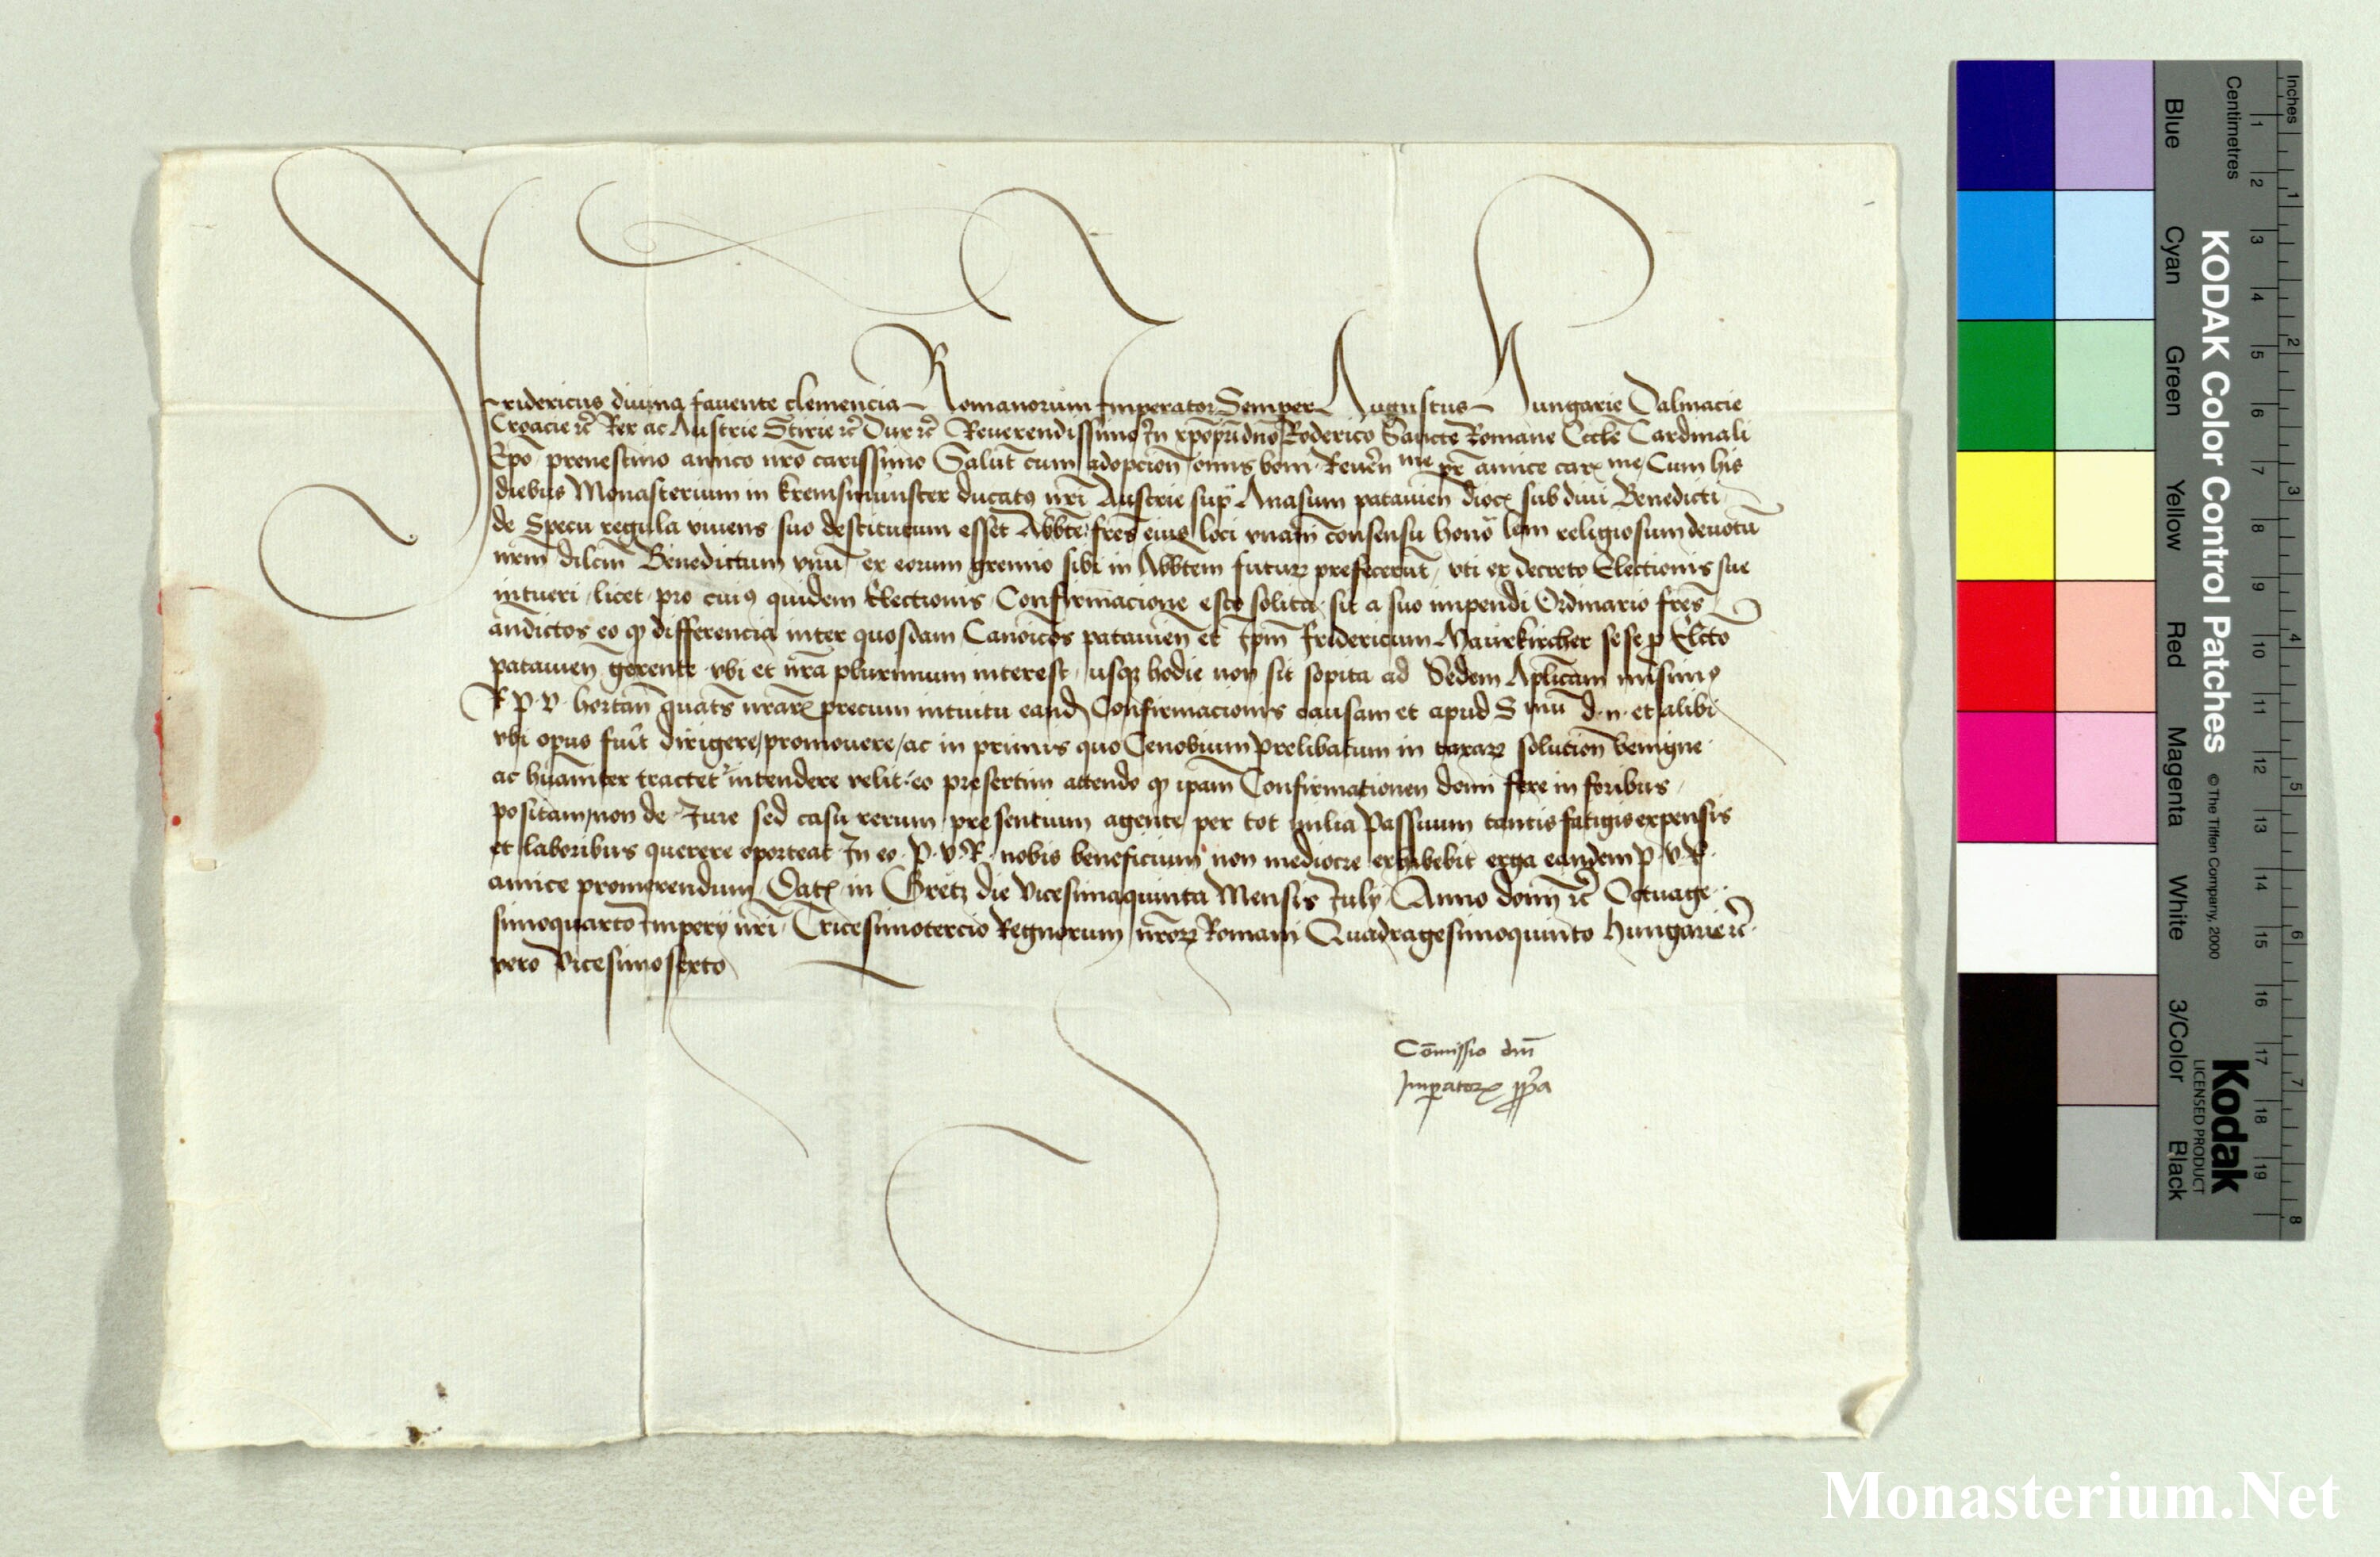 Fridericus divina favente clemencia Romanorum Imperator Semper Augustus Hungarie Dalmacie
Croacie ꝛc̃ Rex ac Austrie Stirie ꝛc̃ Dux ꝛc̃ Reverendissimo In xp̃o pr̃i dn̄o Roderico Sancte Romane Eccl̃e Cardinali
Ep̃o prenestino amico nr̃o carissimo Salut̃ cum adopcion̄ om̄is boni Reveren̄ me pr̃ amice car̃me Cum his
diebus Monasterium in kremsmunster ducatꝰ nr̃i Austrie sup̃ Anasum patavien̄ dioc̃ sub divi Benedicti
de Specu regula vivens suo destitutum esset Abbt̃e fr̃es eius loci vnani consensu honõlem religiosum devotũ
nr̃m dilc̃m Benedictum vnũ ex eorum gremio sibi in Abbtem futurꝝ prefecerũt vti ex decreto Electionis sue
intueri licet pro cuiꝰ quidem Electionis Confirmacione esto solita sit a suo impendi Ordinario fr̃es
andictos eo ꝙ differencia inter quosdam Canõicos patavien̄ et Ip̃m fridericum Maurkircher se se ꝓ El̃cto
patavien̄ gerente vbi et nr̃a plurimum interest usqꝫ hodie non sit sopita ad Sedem Aplicam misimꝰ
R p. v. hortan̄ quat̃s nr̃arꝝ precum intuitu eand̃ Confirmacionis causam et apud S mũ d. n. et alibi
vbi opus fuit̃ dirigere promovere ac in primis quo Cenobium prelibatum in taxarꝝ solucion̄ benigne
ac hũaniter tractet̃ intendere velit eo presertim attendo ꝙ ip̃am Confirmationen domi fere in foribus
positam non de Iure sed casu rerum presentium agente per tot milia Passuum tantis fatigis expensis
et laboribus querere oporteat In eo P. v. R. nobis beneficium non mediocre exhibebit erga eandem p. v. R.
amice promerendum Dat̃ in Gretz die Vicesimaquinta Mensis July Anno domĩ ꝛc̃ Octuage
simoquarto Impery nr̃i Tricesimotercio Regnorum nr̃orꝝ Romani Quadragesimoquinto Hungarie ꝛc̃
vero Vicesimosexto
Com̄issio dn̄i
Imꝑatorꝭ ꝓp̃a
Inches
Centimetres
KODAK Color Control Patches
© The Tiffen Company, 2000
Kodak
LICENSED PRODUCT
Blue
Cyan
Green
Yellow
Red
Magenta
White
3/Color
Black
1 2 3 4 5 6 7 8 9 10 11 12 13 14 15 16 17 18 19
1 2 3 4 5 6 7 8
Monasterium.Net